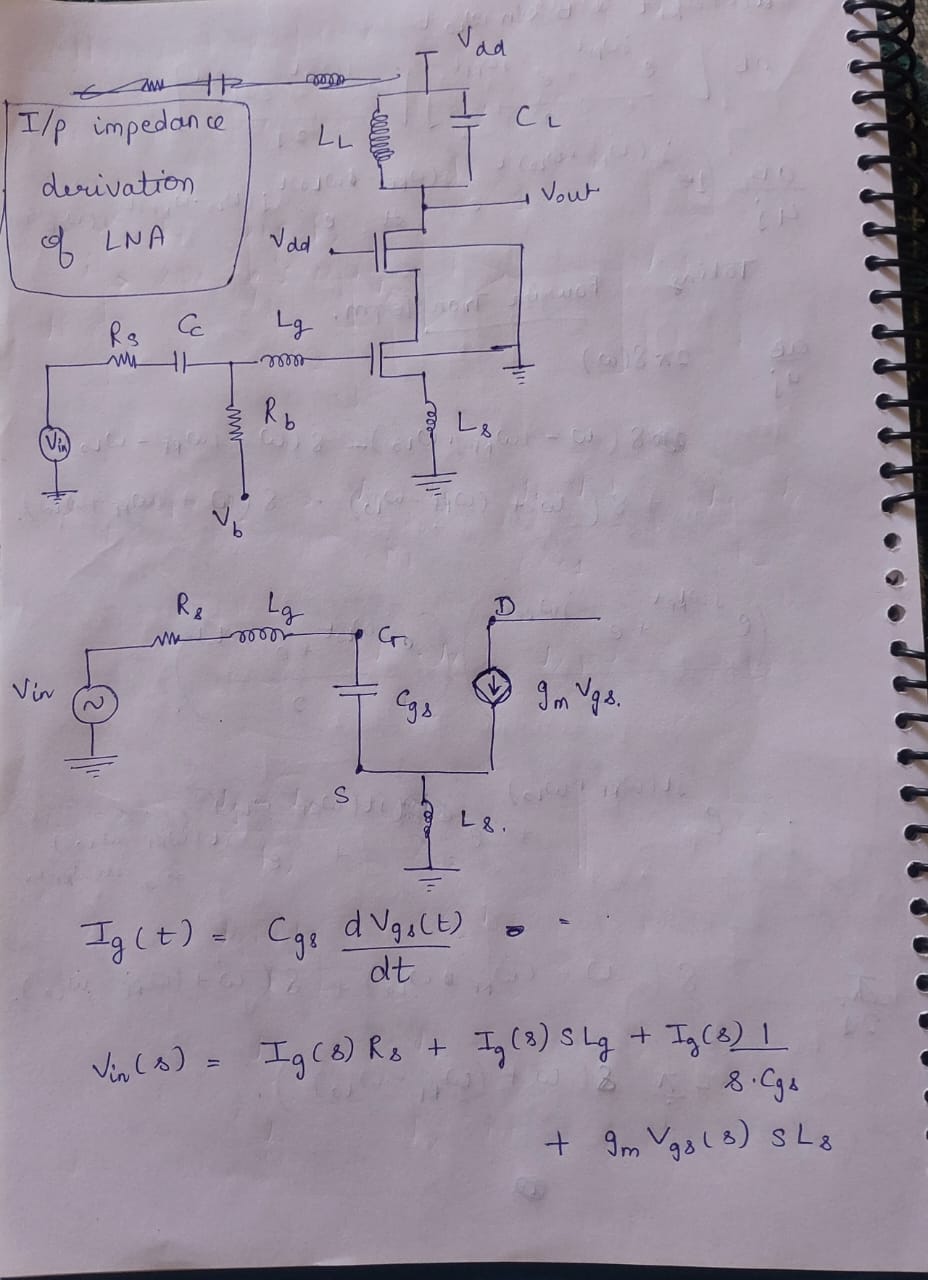 Vdd
I/p impedance
derivation
of LNA
LL
CL
Vout
Vdd
Rs
Cc
Lg
Vin
Rb
Ls
Vb
Rs
Lg
G
D
Vin
Cgs
gm Vgs.
S
Ls.
Ig(t) = Cgs dVgs(t)/dt =
Vin(s) = Ig(s) Rs + Ig(s) SLg + Ig(s) 1/s.Cgs
+ gm Vgs(s) SLs